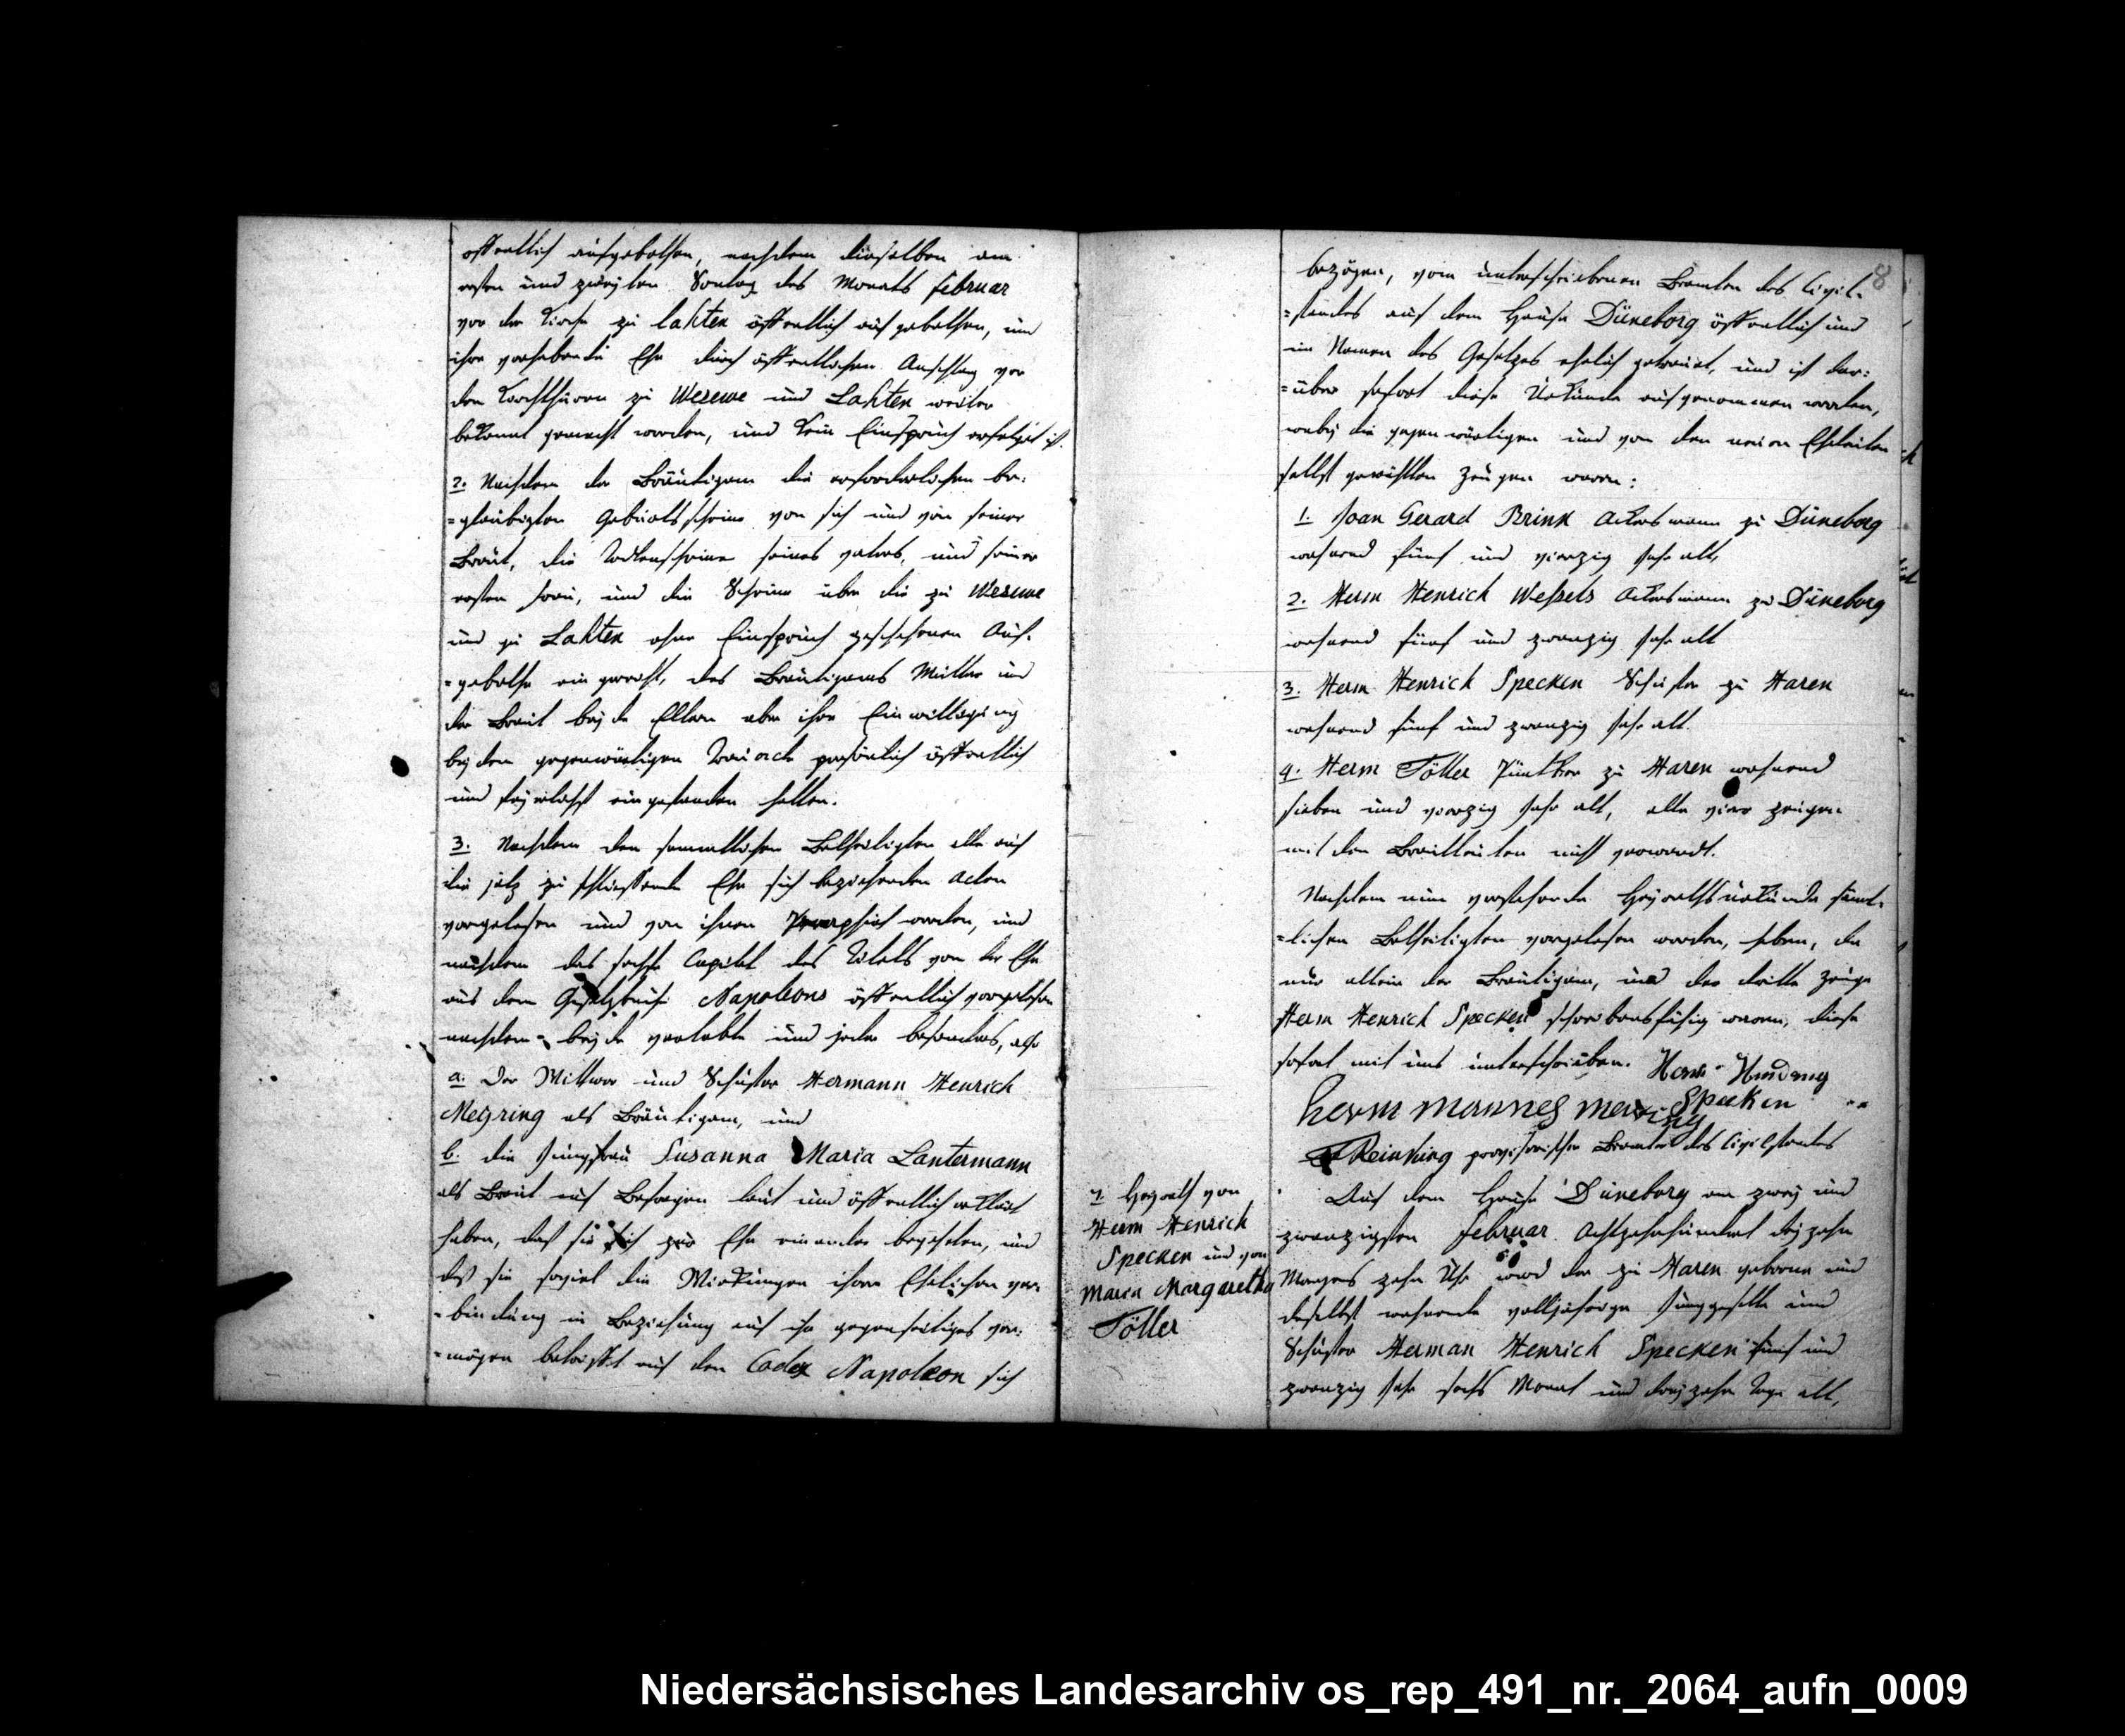 öffentlich aufgebothen, nachdem dieselben am
ersten und zweyten Sontag des Monats Februar
vor der Kirche zu Lahten öffentlich auf gebothen, und
ihre vorhabende Ehe durch öffentlichen Anschlag vor
den Kirchthüren zu Wesuwe und Lahten weiter
bekannt gemacht worden, und kein Einspruch erfolget ist.
2. Nachdem der Bräutigam die erforderlichen be-
=glaubigten Geburtsscheine von sich und von seiner
Braut, die Todtenscheine seines Vaters, und seiner
ersten Frau, und die Scheine über die zu Wesuwe
und zu Lahten ohne Einspruch geschehenen Auf-
=gebothe ein gereicht, des Bräutigams Mutter und
der Braut beyde Eltern aber ihre Einwilligung
bey dem gegenwärtigen Trauact persönlich öffentlich
und feyerlichst eingestanden hatten.
3. Nachdem den sammtlichen Betheiligten alle auf
die jetz zu schliessende Ehe sich beziehenden Acten
vorgelesen und von ihnen worden, und
nachdem das sechste Capitel des Titels von der Ehe
aus dem Gesetzbuche Napoleons öffentlich vorgelesen
nachdem beyde verlobte und jeder besonders, als
a. Der Wittwer und Schüster Hermann Henrich
Meyring als Bräutigam, und
b. die Jungfrau Susanna Maria Lantermann
als Braut auf Befragen laut und öffentlich erklärt
haben, daß sie sich zur Ehe einander begehrten, und
daß sie soviel die Wirkungen ihrer Ehelichen ver-
=bindung in Beziehung auf ihr gegenseitiges ver-
=mögen betrifft auf den Codex Napoleon sich
8
bezögen, vom unterschriebenen Beamten des Civil-
=standes auf dem Hause Düneborg öffentlich und
im Namen des Gesetzes ehelich getrauet, und ist dar-
=über sofort diese Urkunde aufgenommen worden,
wobey die gegenwärtigen und von den neuen Eheleuten
selbst gewählten Zeugen waren:
1. Joan Gerard Brink Ackersmann zu Düneborg
wohnend fünf und vierzig Jahr alt,
2. Herm Henrich Weßels Ackersmann zu Düneborg
wohnend fünf und zwanzig Jahr alt
3. Herm Henrich Specken Schüster zu Haren
wohnend fünf und zwanzig Jahr alt.
4. Herm Töller zu Haren wohnend
sieben und vierzig Jahr alt, alle vier zeugen
mit den Brautleuten nicht verwandt.
Nachdem nun vorstehende Heyrathsurkunde sämt-
=lichen Betheiligten vorgelesen worden, haben, da
nur allein der Bräutigam, und der dritte Zeuge
Herm Henrich Specken schreibensfähig waren, diese
sofort mit uns unterschrieben.
Specken
Reinking provisorischer Beamter des Civilstandes
7. Heyrath von
Herm Henrich
Specken und von
Maria Margaretha
Töller
Auf dem Hause Düneborg am zwey und
zwanzigsten Februar Achtzehnhundert dreyzehn
Morgens zehn Uhr wird der zu Haren geborne und
daselbst wohnende volljährige Junggeselle und
Schüster Herman Henrich Specken fünf und
zwanzig Jahr sechs Monat und dreyzehn Tage alt,
Niedersächsisches Landesarchiv os_rep_491_nr._2064_aufn_0009